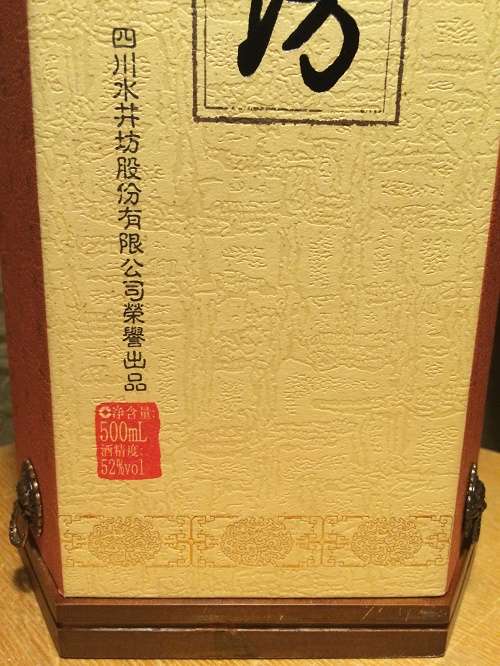 坊
四川水井坊股份有限公司榮譽出品
净含量:
500mL
酒精度:
52%vol